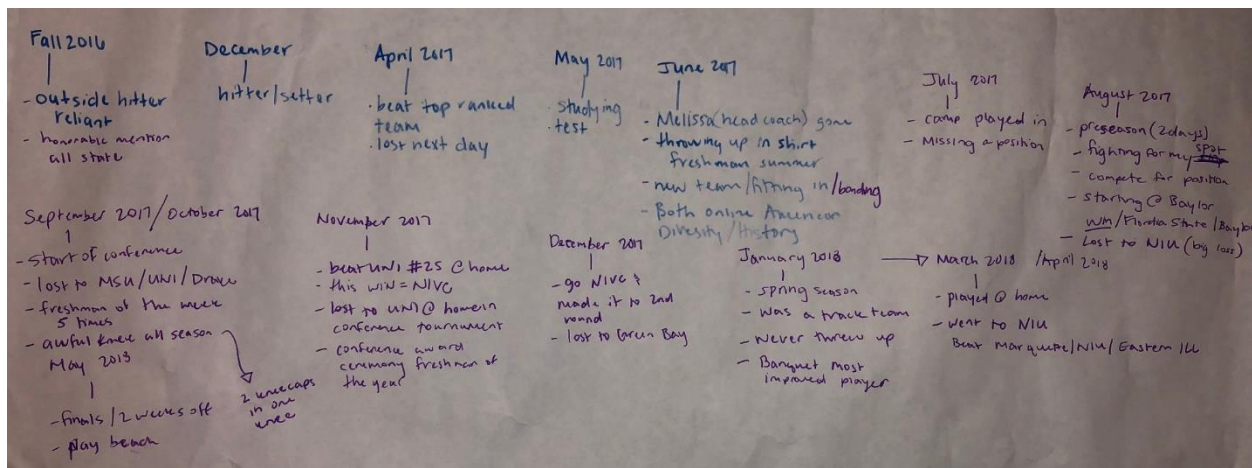 Fall 2016
- outside hitter
reliant
- honorable mention
all state
December
hitter/setter
April 2017
· beat top ranked
team
· lost next day
May 2017
· studying
· test
June 2017
- Melissa (head coach) gone
- throwing up in shirt
freshman summer
- new team/fitting in/bonding
- Both online American
Diversity/History
July 2017
- camp played in
- Missing a position
August 2017
- preseason (2days)
- fighting for my spot
- compete for position
- starting @ Baylor
Win/Florida State/Baylor
- Lost to NIU (big loss)
September 2017/October 2017
- start of conference
- lost to MSU/UNI/Drake
- freshman of the week
5 times
- awful knee all season
2 kneecaps
in one
knee
November 2017
- beat UNI #25 @ home
- this win = NIVC
- lost to UNI @ home in
conference tournament
- conference award
ceremony freshman of
the year
December 2017
- go NIVC &
made it to 2nd
round
- lost to Green Bay
January 2018
- spring season
- was a track team
- Never threw up
- Banquet most
improved player
March 2018 /April 2018
- played @ home
- went to NIU
Beat Marquette/NIU/Eastern Ill
May 2018
- finals/2 weeks off
- play beach